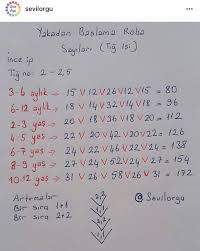 sevilorgu
Yakadan Başlama Roba
Sayıları (Tığ İşi)
İnce ip
Tığ no: 2 - 2,5
3-6 aylık → 15 V 12 V 26 V 12 V 15 = 80
6-12 aylık → 18 V 14 V 32 V 14 V 18 = 96
2-3 yaş → 20 V 18 V 36 V 18 V 20 = 112
4-5 yaş → 22 V 20 V 42 V 20 V 22 = 126
6-7 yaş → 24 V 22 V 46 V 22 V 24 = 138
8-9 yaş → 27 V 24 V 52 V 24 V 27 = 154
10-12 yaş → 31 V 26 V 58 V 26 V 31 = 172
Artırmalar
@Sevilorgu
Bir sıra 1+1
Bir sıra 2+2